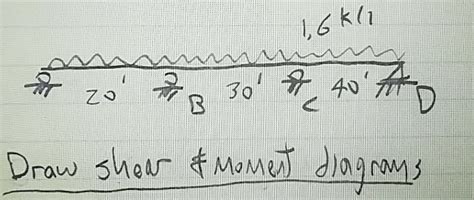 1,6 k/1
20' B 30' C 40' D
Draw shear & Moment diagrams